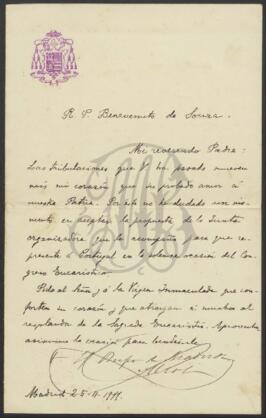 R. P. Benevenuto de Souza.
Mi reverendo Padre:
Las tribulaciones que V. ha pasado mueven
más mi corazón que su probado amor á
nuestra Patria. Por esto no he dudado un mo-
mento en aceptar la propuesta de la Junta
organizadora que le acompaño, para que re-
presente á Portugal en la solemne ocasión del Con-
greso Eucarístico.
Pido al Señor y á la Virgen Inmaculada que con-
forten su corazón y que atraigan á muchos al
de la Sagrada Eucaristía.
la ocasión para
Madrid 25. 1911.